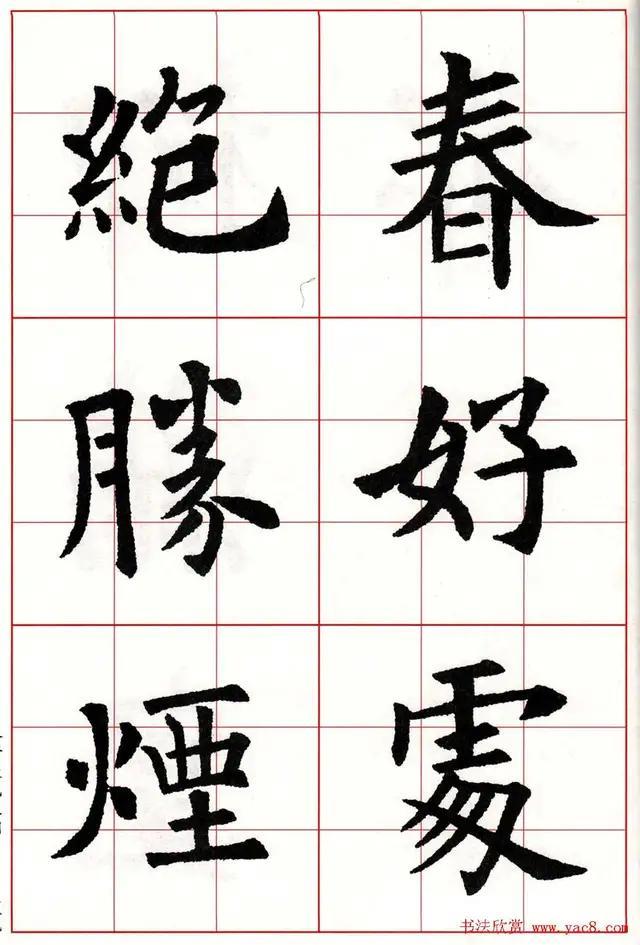 春好處
絕勝煙
书法欣赏 www.yac8.com